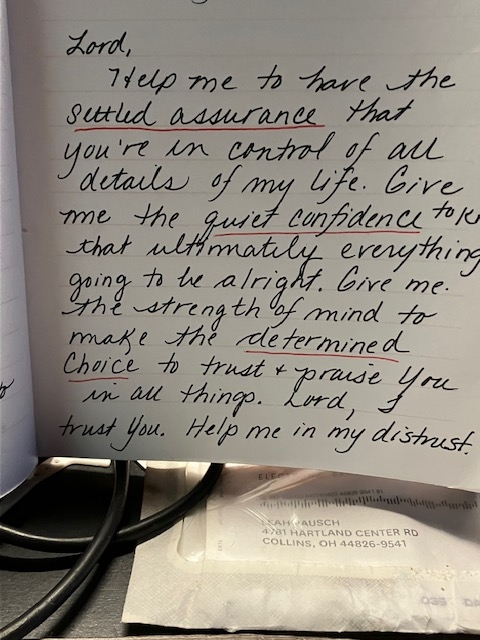 Lord,
Help me to have the
settled assurance that
you're in control of all
details of my life. Give
me the quiet confidence to
that ultimately everything
going to be alright. Give me
the strength of mind to
make the determined
Choice to trust & praise You
in all things. Lord, I
trust You. Help me in my distrust.
ELEC
4781 HARTLAND CENTER RD
COLLINS, OH 44826-9541